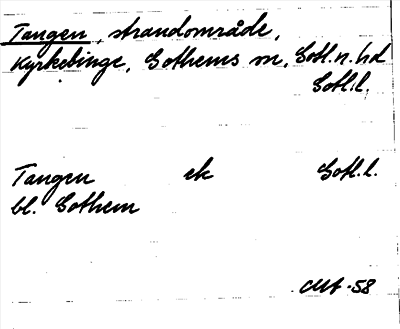 Tangen, strandområde,
Kyrkebinge, Gothems sn, Gotl. n. hd
Gotl.l.
Tangen ek Gotl.l.
bl. Gothem
-58